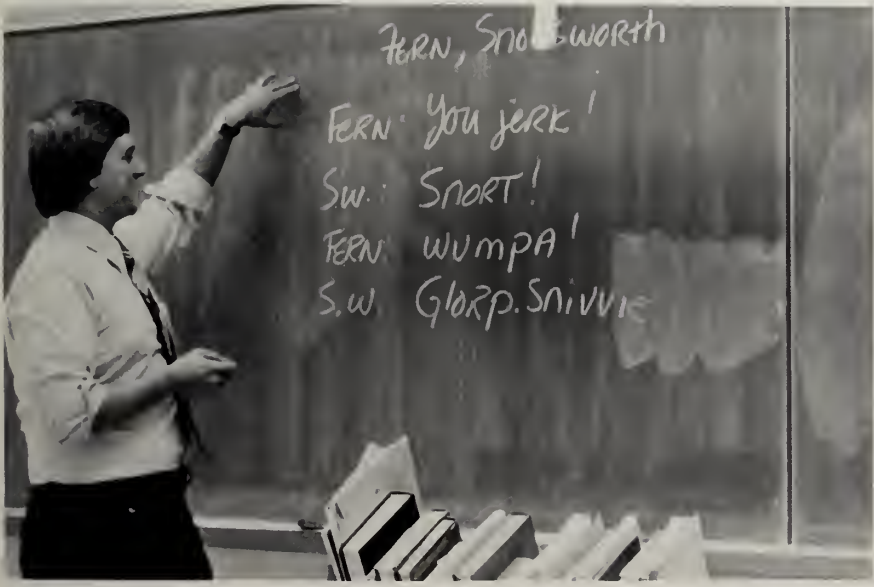 FERN, Snodsworth
FERN: You jerk!
S.W.: SnORT!
FERN: wumpA!
S.W. Glorp. Snivvle